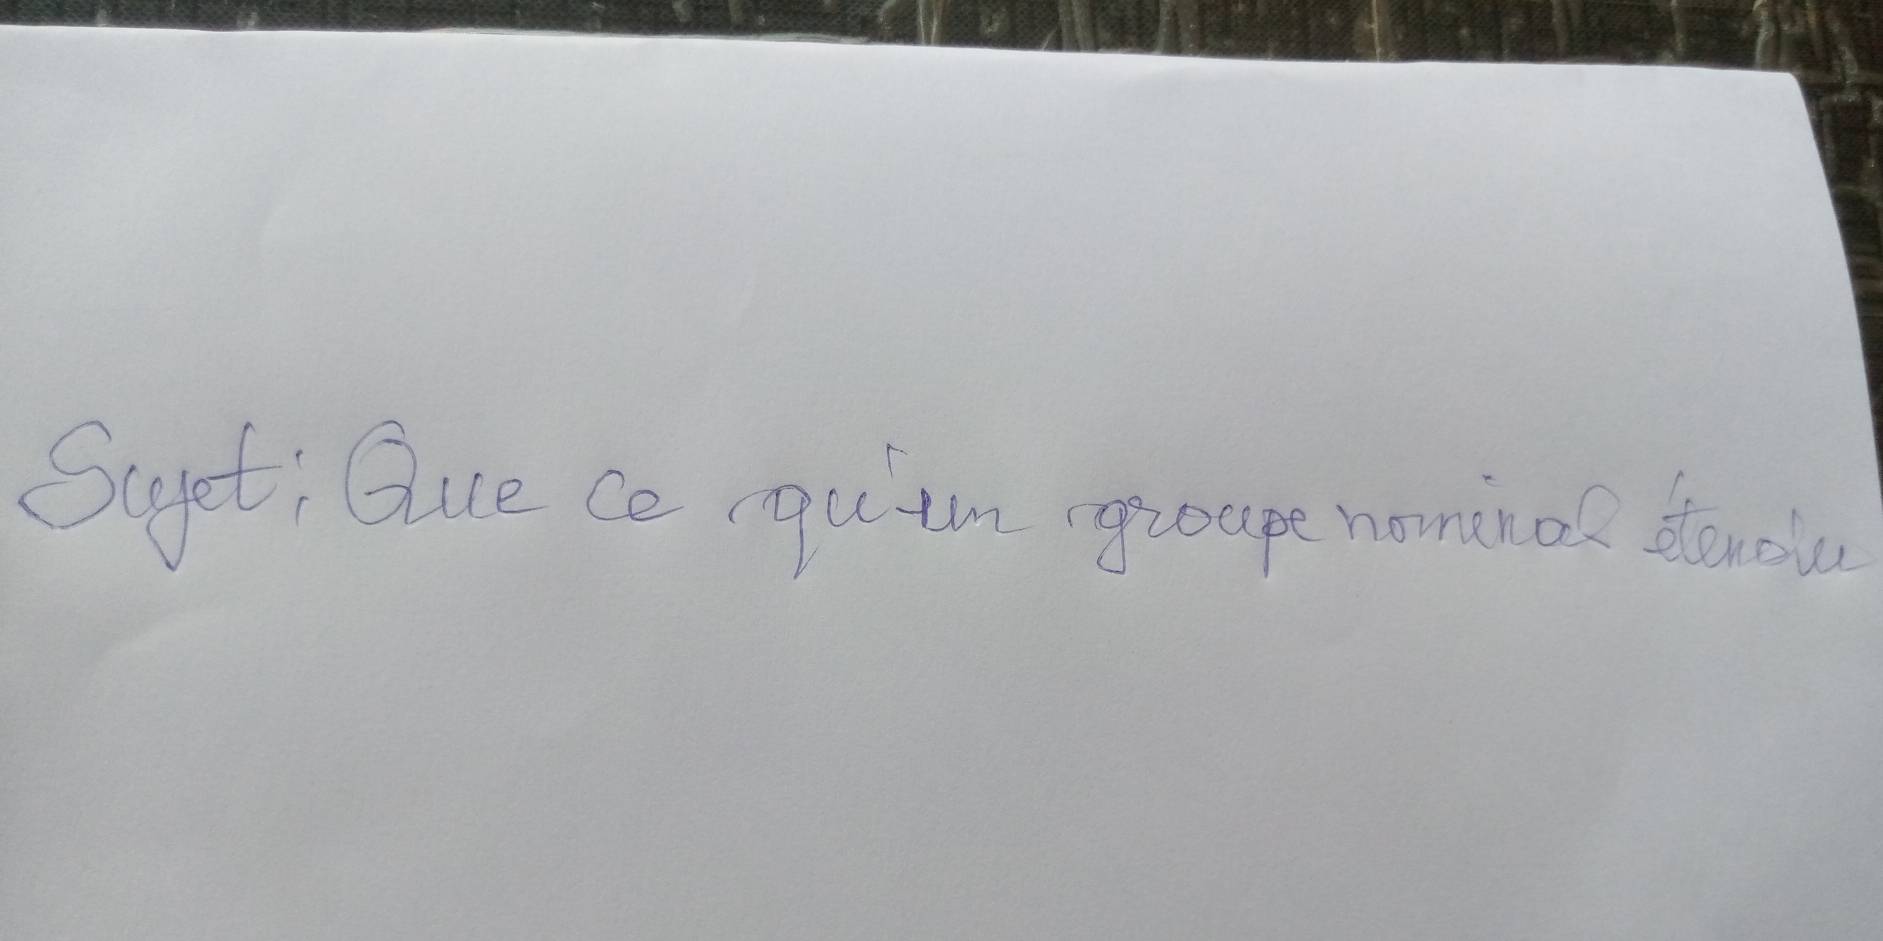 Sujet : Que ce qu'un groupe nominal étendu